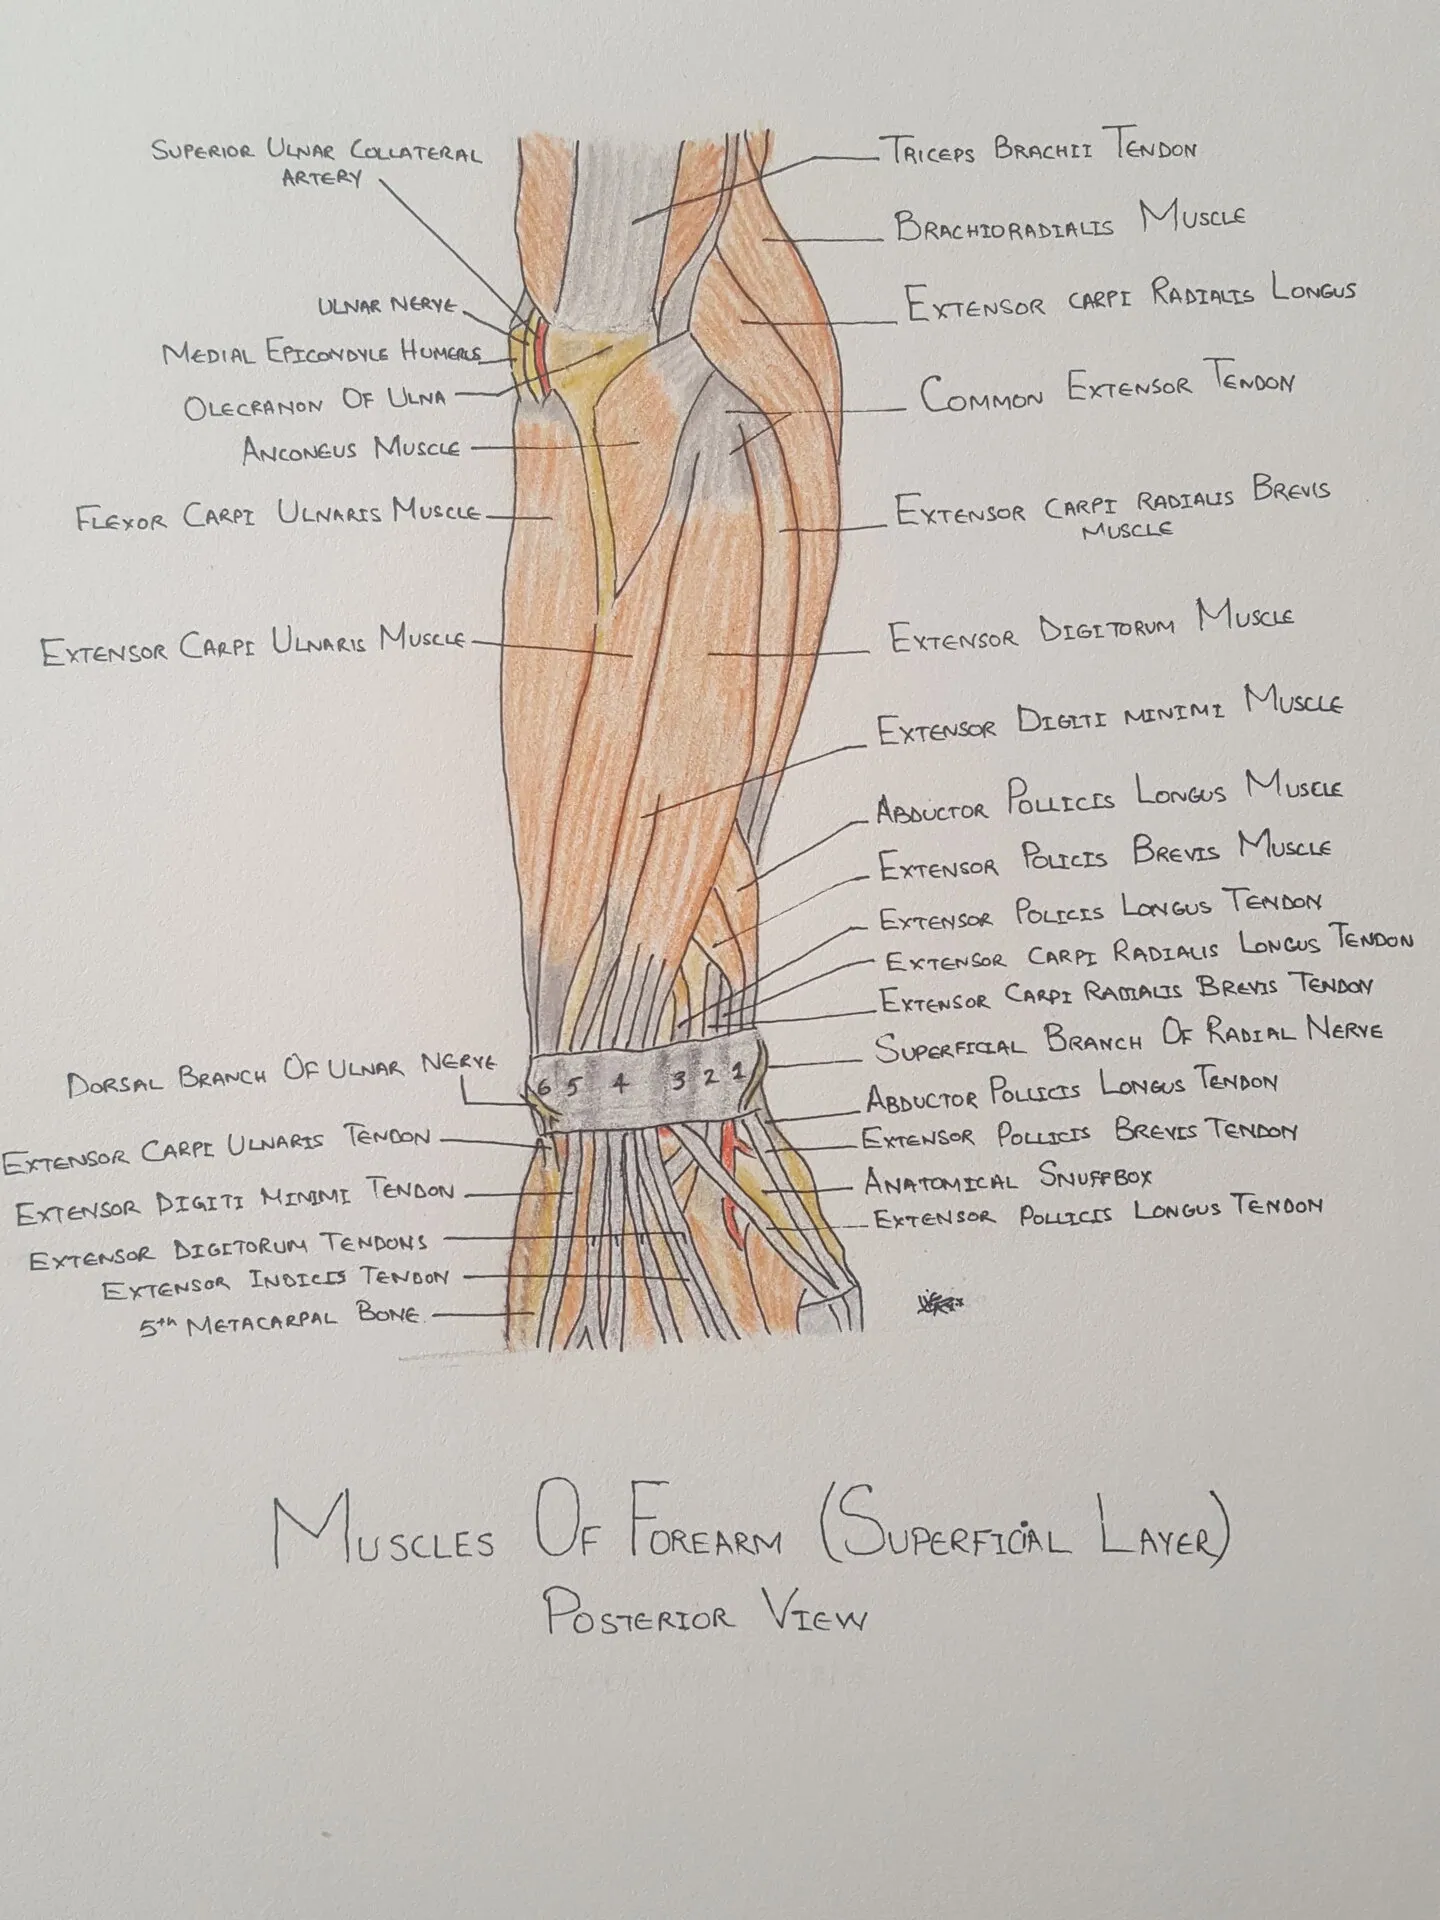 SUPERIOR ULNAR COLLATERAL
ARTERY
ULNAR NERVE
MEDIAL EPICONDYLE HUMERUS
OLECRANON OF ULNA
ANCONEUS MUSCLE
FLEXOR CARPI ULNARIS MUSCLE
EXTENSOR CARPI ULNARIS MUSCLE
DORSAL BRANCH OF ULNAR NERVE
EXTENSOR CARPI ULNARIS TENDON
EXTENSOR DIGITI MINIMI TENDON
EXTENSOR DIGITORUM TENDONS
EXTENSOR INDICIS TENDON
5th METACARPAL BONE
6 5 4 3 2 1
TRICEPS BRACHII TENDON
BRACHIORADIALIS MUSCLE
EXTENSOR CARPI RADIALIS LONGUS
COMMON EXTENSOR TENDON
EXTENSOR CARPI RADIALIS BREVIS
MUSCLE
EXTENSOR DIGITORUM MUSCLE
EXTENSOR DIGITI MINIMI MUSCLE
ABDUCTOR POLLICIS LONGUS MUSCLE
EXTENSOR POLICIS BREVIS MUSCLE
EXTENSOR POLICIS LONGUS TENDON
EXTENSOR CARPI RADIALIS LONGUS TENDON
EXTENSOR CARPI RADIALIS BREVIS TENDON
SUPERFICIAL BRANCH OF RADIAL NERVE
ABDUCTOR POLLICIS LONGUS TENDON
EXTENSOR POLLICIS BREVIS TENDON
ANATOMICAL SNUFFBOX
EXTENSOR POLLICIS LONGUS TENDON
MUSCLES OF FOREARM (SUPERFICIAL LAYER)
POSTERIOR VIEW